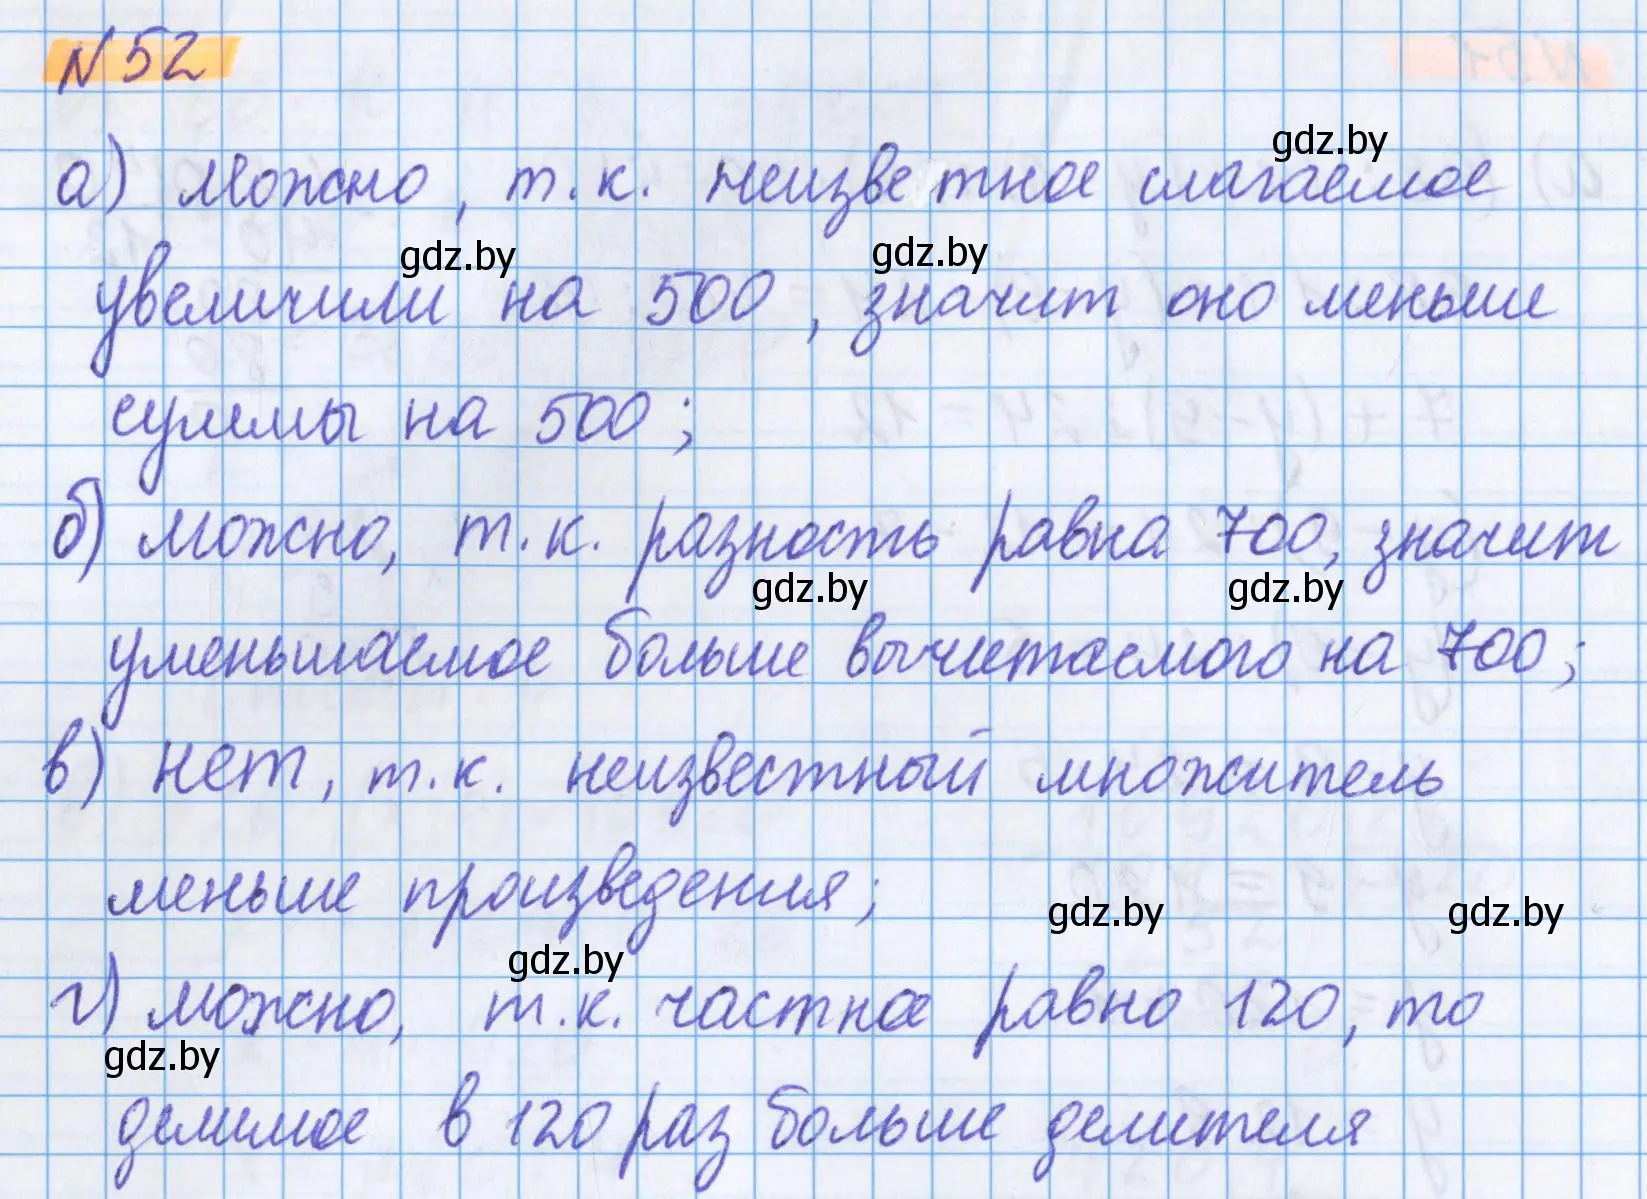 №52
а) можно, т.к. неизветное слагаемое
увеличили на 500, значит оно меньше
суммы на 500;
б) можно, т.к. разность равна 700, значит
уменьшаемое больше вычитаемого на 700;
в) нет, т.к. неизвестный множитель
меньше произведения;
г) можно, т.к. частное равно 120, то
делимое в 120 раз больше делителя
gdz.by
gdz.by
gdz.by
gdz.by
gdz.by
gdz.by
gdz.by
gdz.by
gdz.by